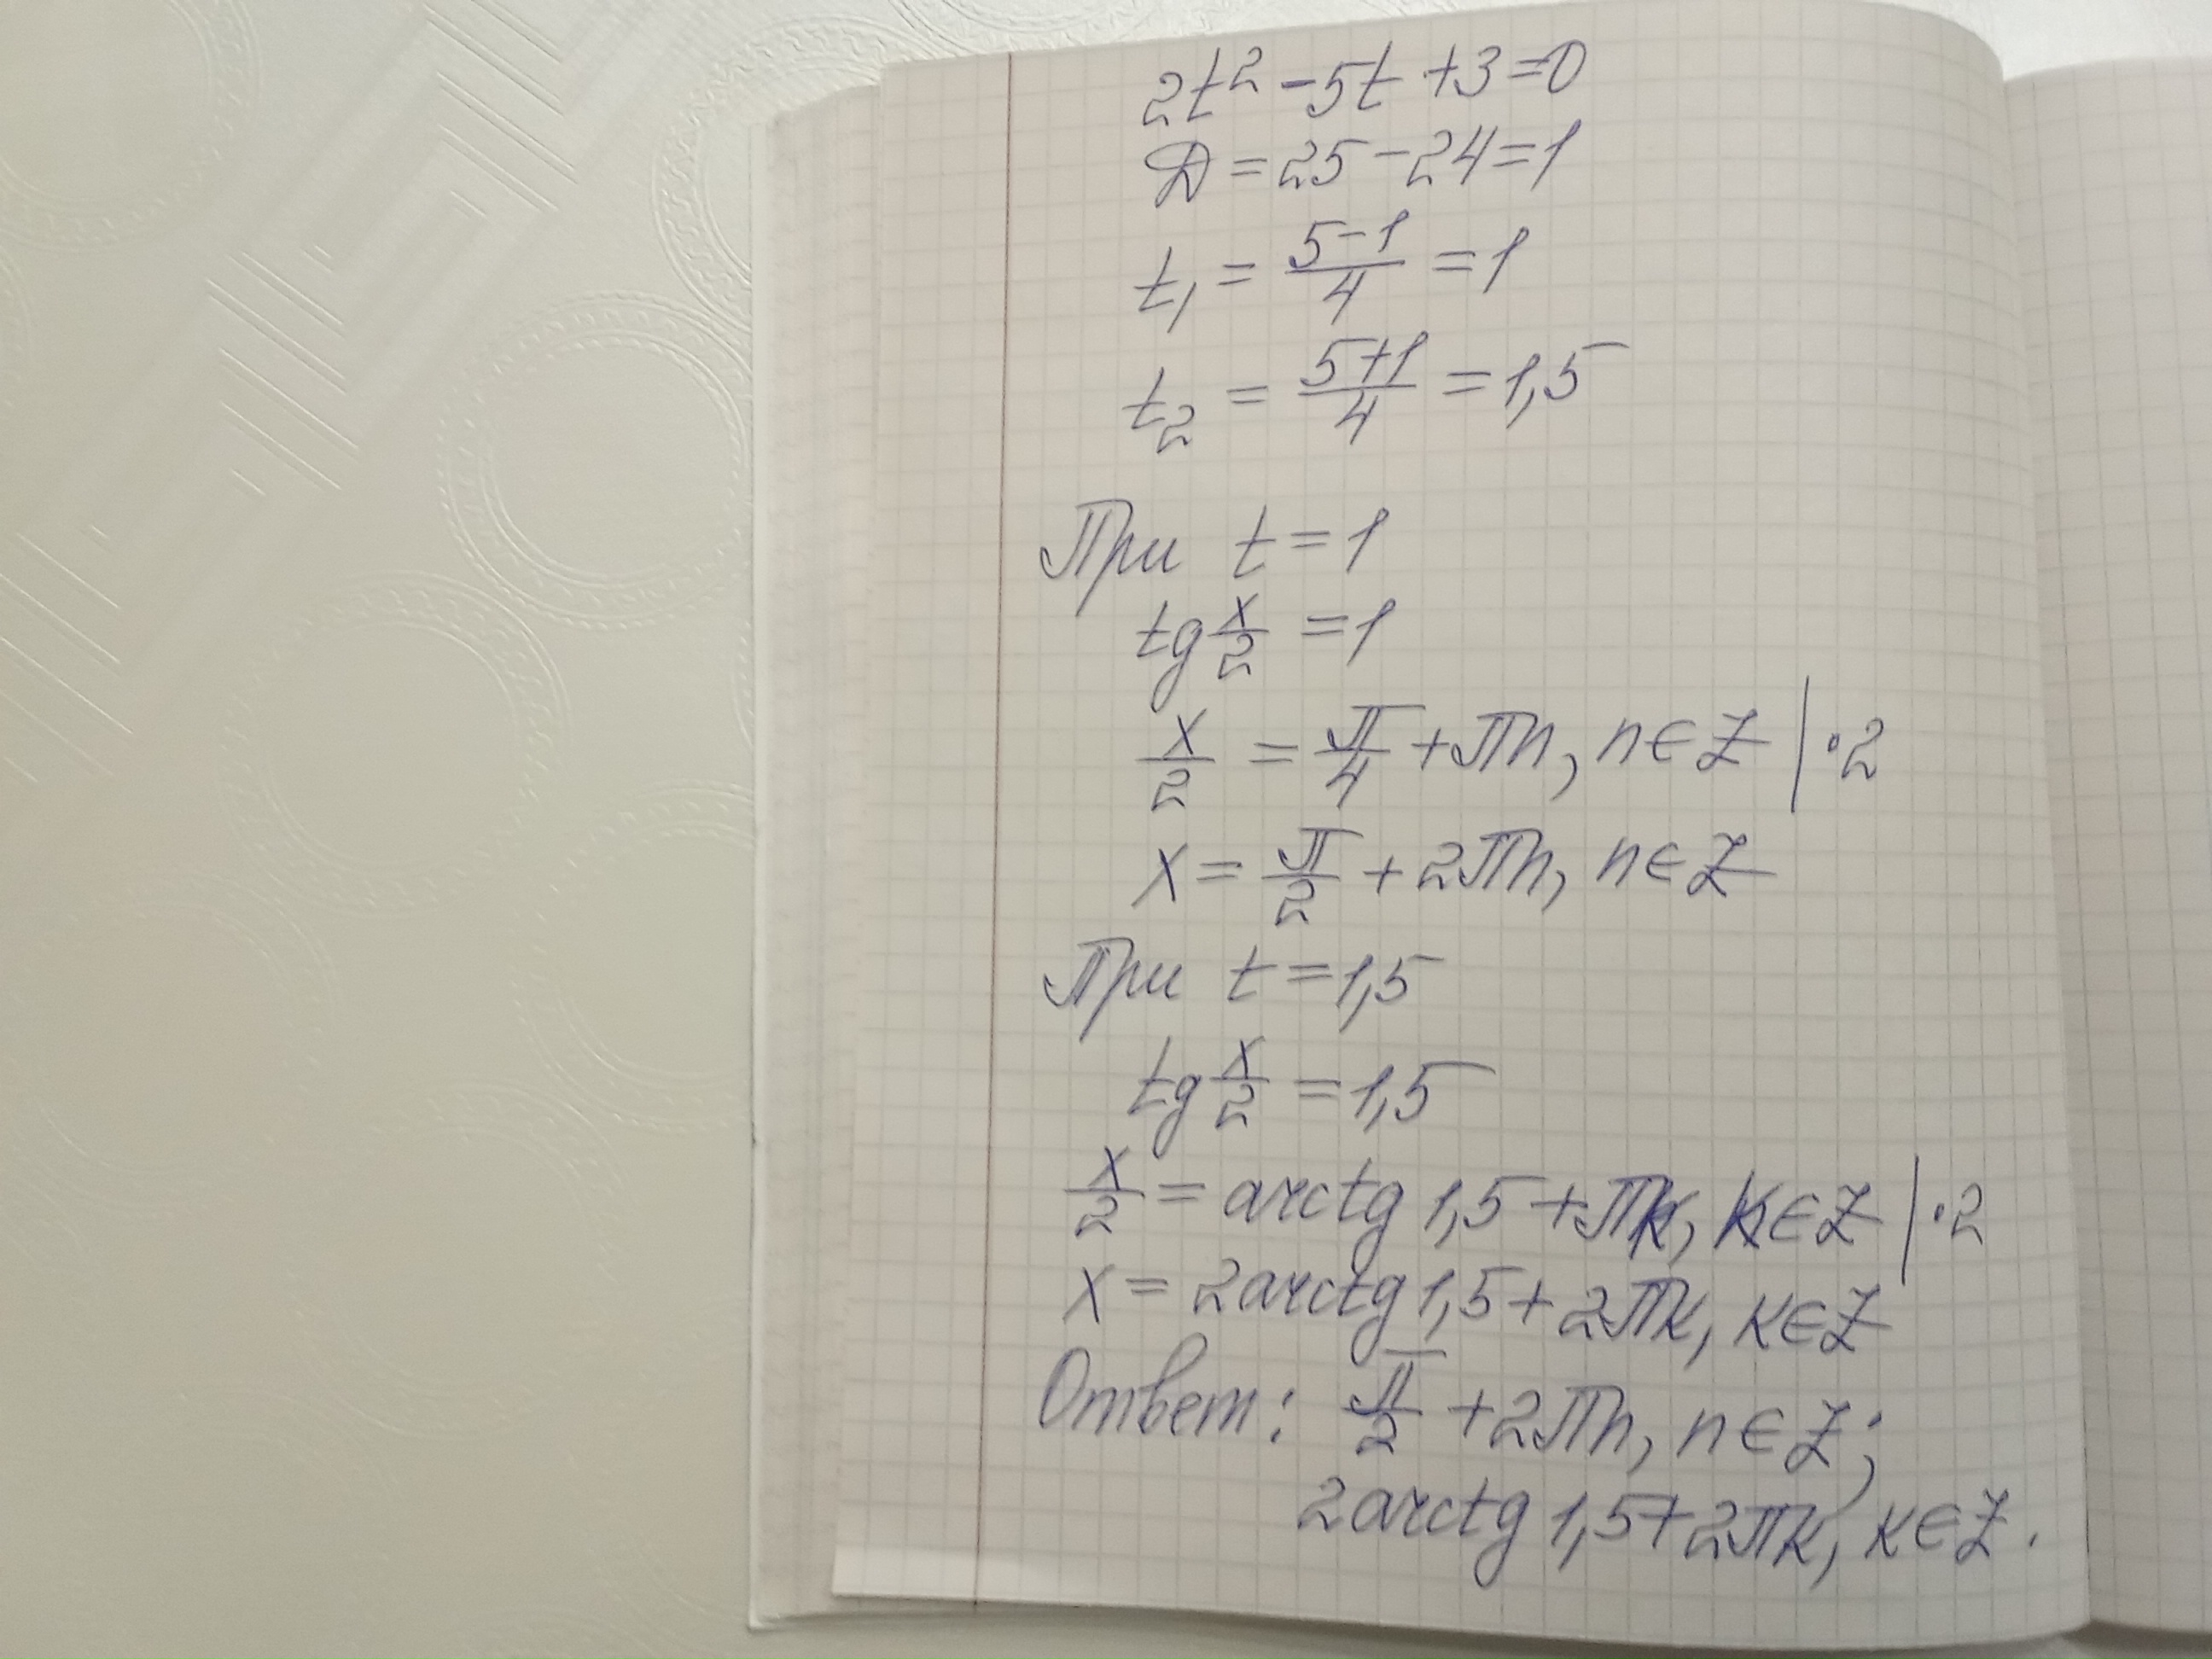 2t² - 5t + 3 = 0
Д = 25 - 24 = 1
t₁ = (5-1)/4 = 1
t₂ = (5+1)/4 = 1,5
При t = 1
tg x/2 = 1
x/2 = π/4 + πn, n∈Z | ·2
x = π/2 + 2πn, n∈Z
При t = 1,5
tg x/2 = 1,5
x/2 = arctg 1,5 + πк, к∈Z | ·2
x = 2arctg 1,5 + 2πк, к∈Z
Ответ: π/2 + 2πn, n∈Z;
2arctg 1,5 + 2πк, к∈Z.